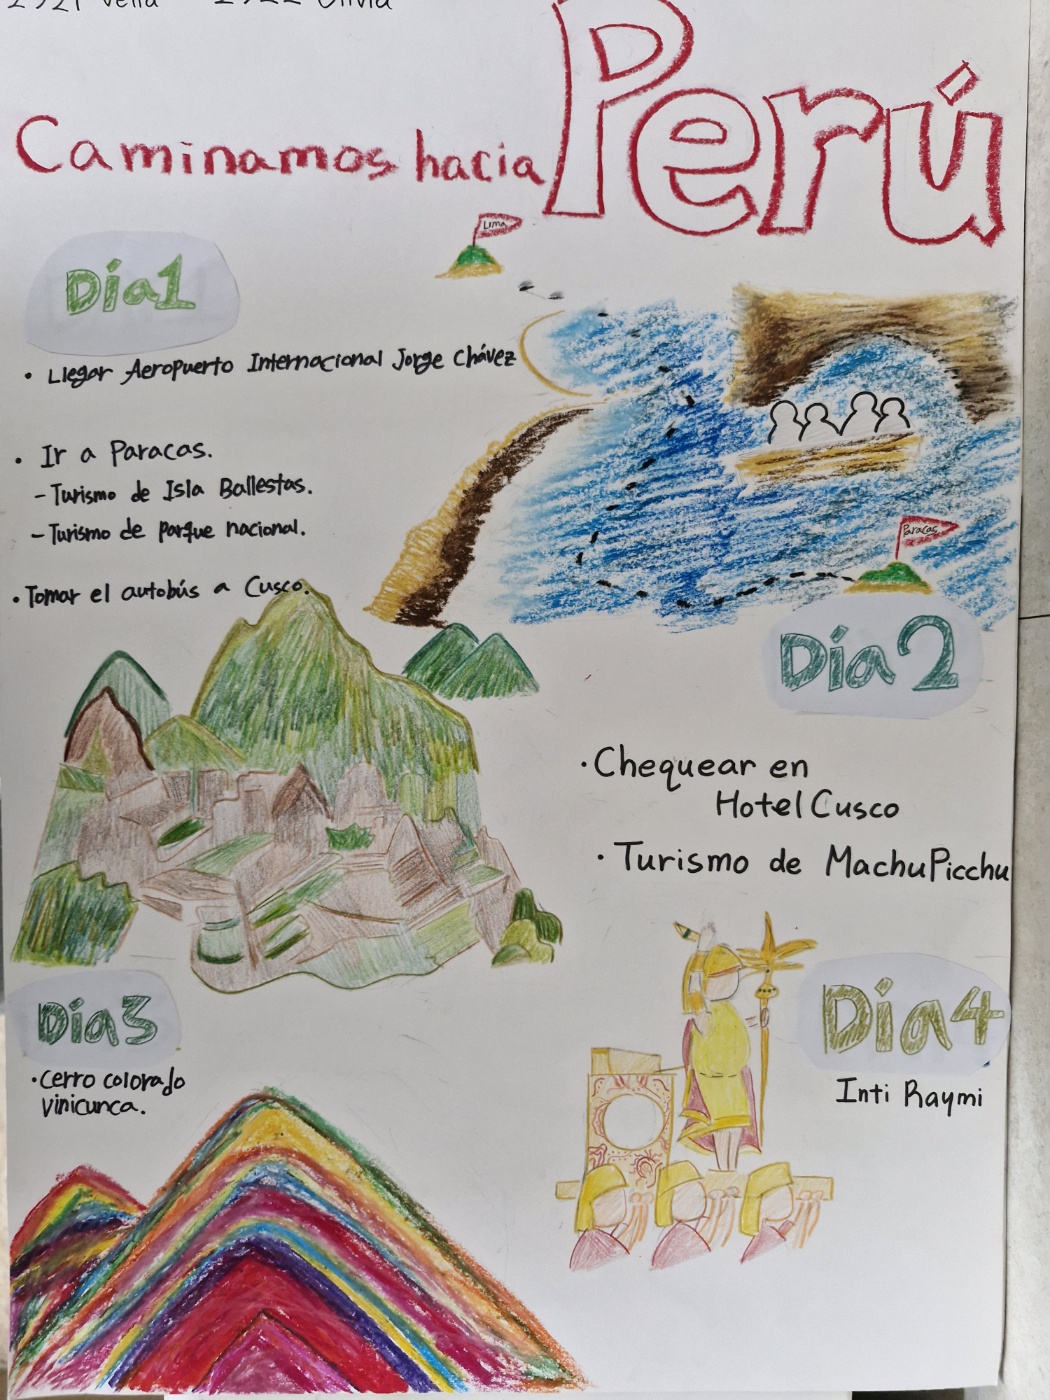 Olivia
Caminamos hacia Perú
Lima
Día1
• Llegar Aeropuerto Internacional Jorge Chávez
• Ir a Paracas.
- Turismo de Isla Ballestas.
- Turismo de parque nacional.
• Tomar el autobús a Cusco.
Paracas
Día2
• Chequear en
Hotel Cusco
• Turismo de MachuPicchu
Día3
• Cerro colorado
vinicunca.
Día4
Inti Raymi